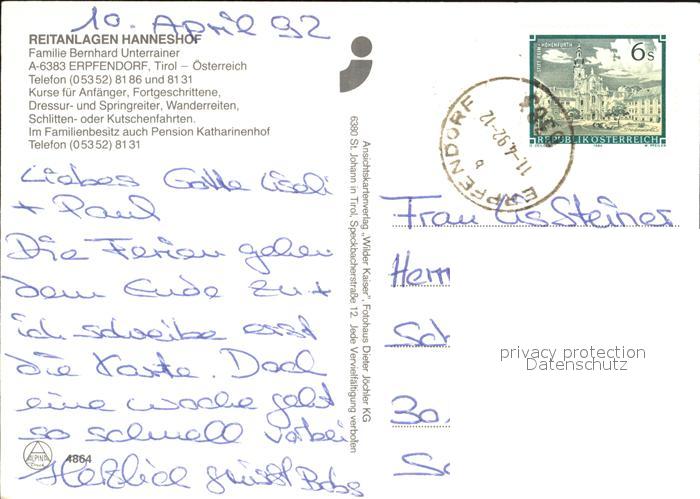 10. April 92
REITANLAGEN HANNESHOF
Familie Bernhard Unterrainer
A-6383 ERPFENDORF, Tirol – Österreich
Telefon (05352) 8186 und 8131
Kurse für Anfänger, Fortgeschrittene,
Dressur- und Springreiter, Wanderreiten,
Schlitten- oder Kutschenfahrten.
Im Familienbesitz auch Pension Katharinenhof
Telefon (05352) 8131
Liebes Gotte Liseli
+ Paul
Die Ferien gehen
dem Ende zu +
ich schreibe erst
die Karte. Doch
eine woche geht
so schnell vorbei
Herzlich grüsst Babs
ALPINA
4864
Ansichtskartenverlag „Wilder Kaiser", Fotohaus Dieter Jöchler KG
6380 St. Johann in Tirol, Speckbacherstraße 12. Jede Vervielfältigung verboten
STIFT REIN-HOHENFURTH
6 S
REPUBLIK ÖSTERREICH
1984
ERPFENDORF
11.-4.92-12
b
6383
Frau Lis Steiner
Herr
Sch
30
Sc
privacy protection
Datenschutz